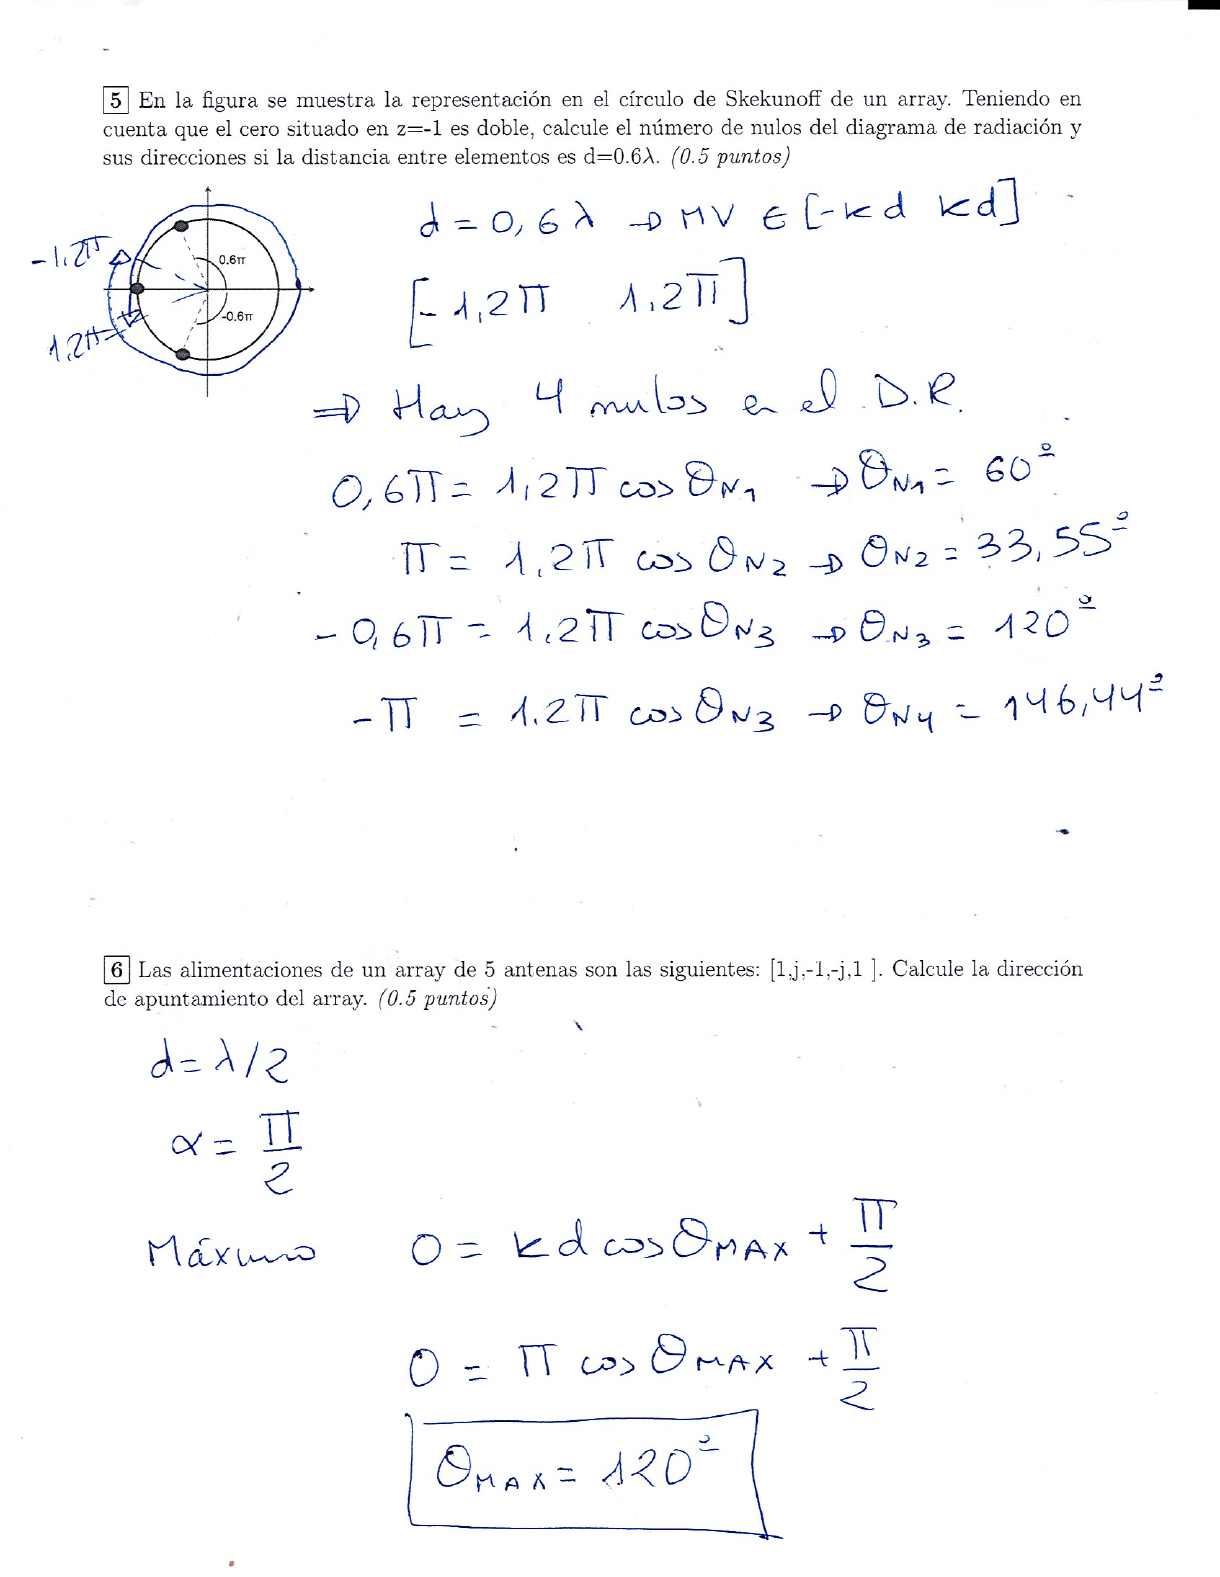 5 En la figura se muestra la representación en el círculo de Skekunoff de un array. Teniendo en
cuenta que el cero situado en z=-1 es doble, calcule el número de nulos del diagrama de radiación y
sus direcciones si la distancia entre elementos es d=0.6λ. (0.5 puntos)
d = 0,6 λ → MV ∈ [-kd kd]
-1.2π
0.6π
[-1,2π 1.2π]
-0.6π
1.2π
⇒ Hay 4 nulos en el D.R.
0,6π = 1,2π cos θN1 → θN1 = 60º
π = 1.2π cos θN2 → θN2 = 33,55º
-0,6π = 1.2π cos θN3 → θN3 = 120º
-π = 1.2π cos θN3 → θN4 = 146,44º
6 Las alimentaciones de un array de 5 antenas son las siguientes: [1,j,-1,-j,1 ]. Calcule la dirección
de apuntamiento del array. (0.5 puntos)
d = λ/2
α = π/2
Máximo 0 = kd cos θMAX + π/2
0 = π cos θMAX + π/2
θMAX = 120º